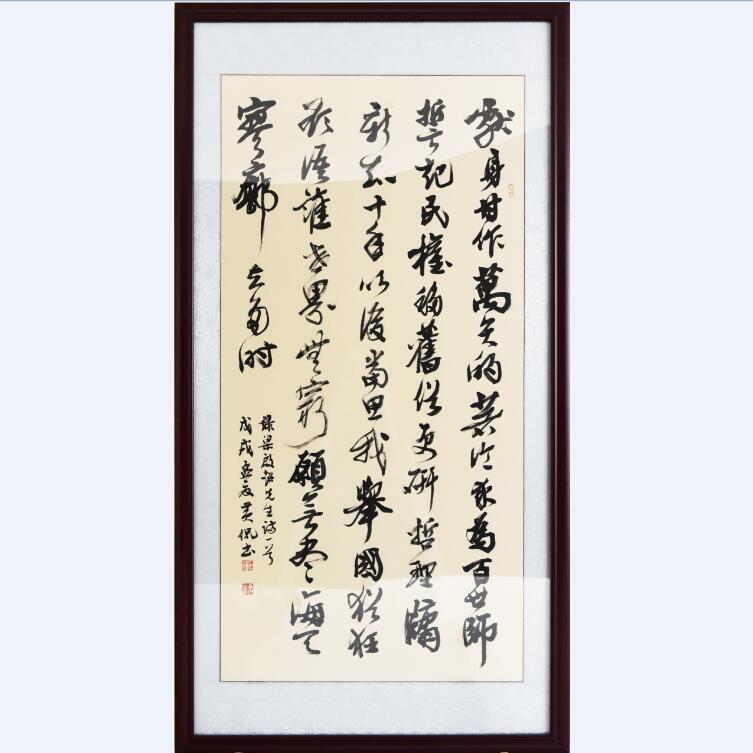 獻身甘作萬矢的著論求為百世師
誓起民權移舊俗更研哲理牖
新知十年以後當思我舉國猶狂
欲語誰世界無窮願無盡海天
寥廓立多时
錄梁啟超先生詩一首
戊戌孟夏黄侃书